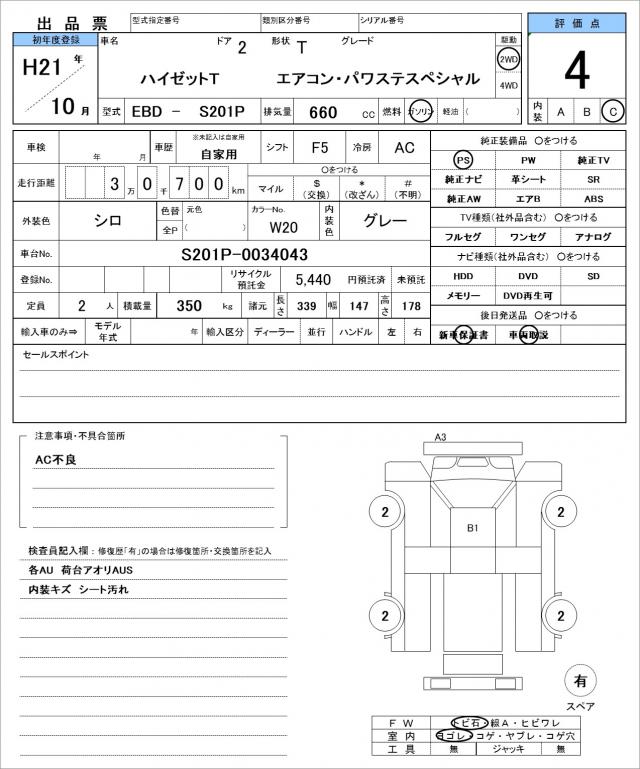 出品票 型式指定番号 類別区分番号 シリアル番号 評価点
初年度登録 車名 ドア 2 形状 T グレード 駆動
H21年 ハイゼットT エアコン・パワステスペシャル 2WD 4
4WD
10月 型式 EBD － S201P 排気量 660 cc 燃料 ガソリン 軽油 ( ) 内装 A B C
車検 年 月 車歴 ※未記入は自家用 自家用 シフト F5 冷房 AC 純正装備品 〇をつける
PS PW 純正TV
走行距離 3万 0千 7 0 0 km 〇をつける
マイル $(交換) *(改ざん) #(不明) 純正ナビ 革シート SR
純正AW エアB ABS
外装色 シロ 色替 元色 カラーNo. W20 内装色 グレー TV種類(社外品含む) 〇をつける
全P ( ) フルセグ ワンセグ アナログ
車台No. S201P-0034043 ナビ種類(社外品含む) 〇をつける
登録No. リサイクル預託金 5,440 円預託済 未預託 HDD DVD SD
定員 2 人 積載量 350 kg 諸元 長さ 339 幅 147 高さ 178 メモリー DVD再生可
後日発送品 〇をつける
輸入車のみ⇒ モデル年式 年 輸入区分 ディーラー 並行 ハンドル 左 右 新車保証書 車両取説
セールスポイント
注意事項・不具合箇所
AC不良
検査員記入欄：修復歴「有」の場合は修復箇所・交換箇所を記入
各AU 荷台アオリAUS
内装キズ シート汚れ
A3
2 2
B1
2 2
有
スペア
FW トビ石・線A・ヒビワレ
室内 ヨゴレ・コゲ・ヤブレ・コゲ穴
工具 無 ジャッキ 無